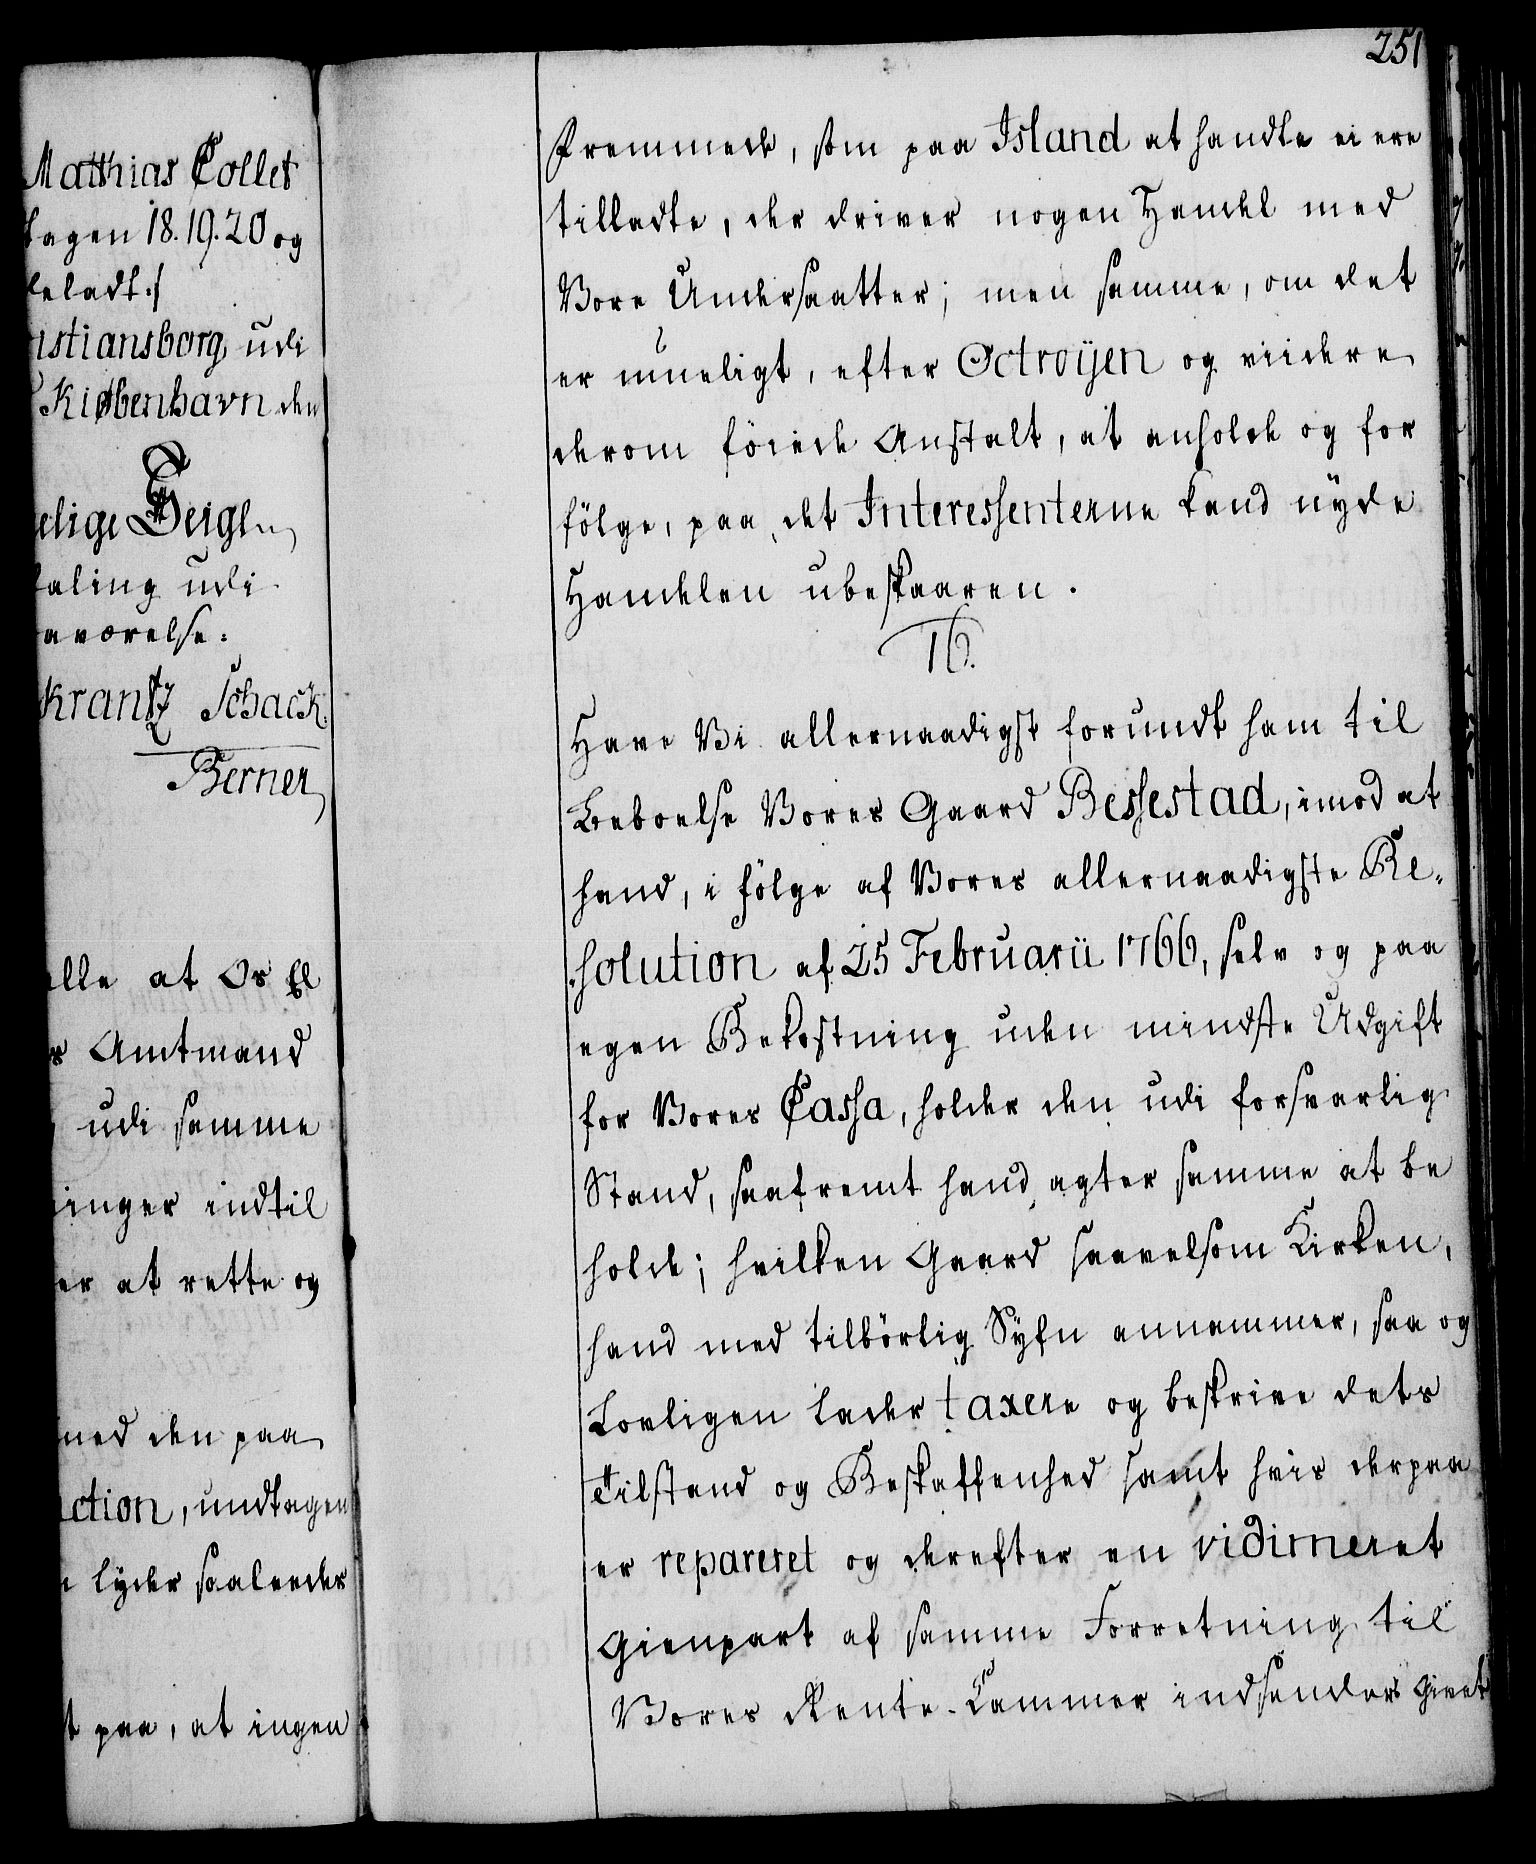 Mathias Collet
tagen 18. 19. 20 og
deladt./
istiansborg udi
Kiøbenhavn den
elige Seigl
faling udi
aværelse.
krantz Schack.
Berner
alle at Os El
Amtmand
udi samme
ninger indtil
er at rette og
med den paa
ction, undtagen
lyder saaleedes
t paa, at ingen
251
Fremmede, som paa Island at handle ei ere
tilladte, der driver nogen Handel med
Vore Undersaatter; men samme, om det
er mueligt, efter Octroijen og viidere
derom föiede Anstalt, at anholde og for
fölge, paa det Interessenterne kand nyde
Handelen ubeskaaren.
16.
Have Vi allernaadigst forundt ham til
Beboelse Vores Gaard Bessestad, imod at
hand, i fölge af Vores allernaadigste Re-
solution af 25 Februarii 1766, selv og paa
egen Bekostning uden mindste Udgift
for Vores Cassa, holder den udi forsvarlig
Stand, saafremt hand agter samme at be
holde; hvilken Gaard saavelsom Kirken,
hand med tilbörlig Syfn annammer, saa og
Lovligen lader taxere og beskrive dets
Tilstand og Beskaffenhed samt hvis derpaa
er repareret og derefter en vidimeret
Gienpart af samme Forretning til
Vores Rente-Cammer indsender Givet